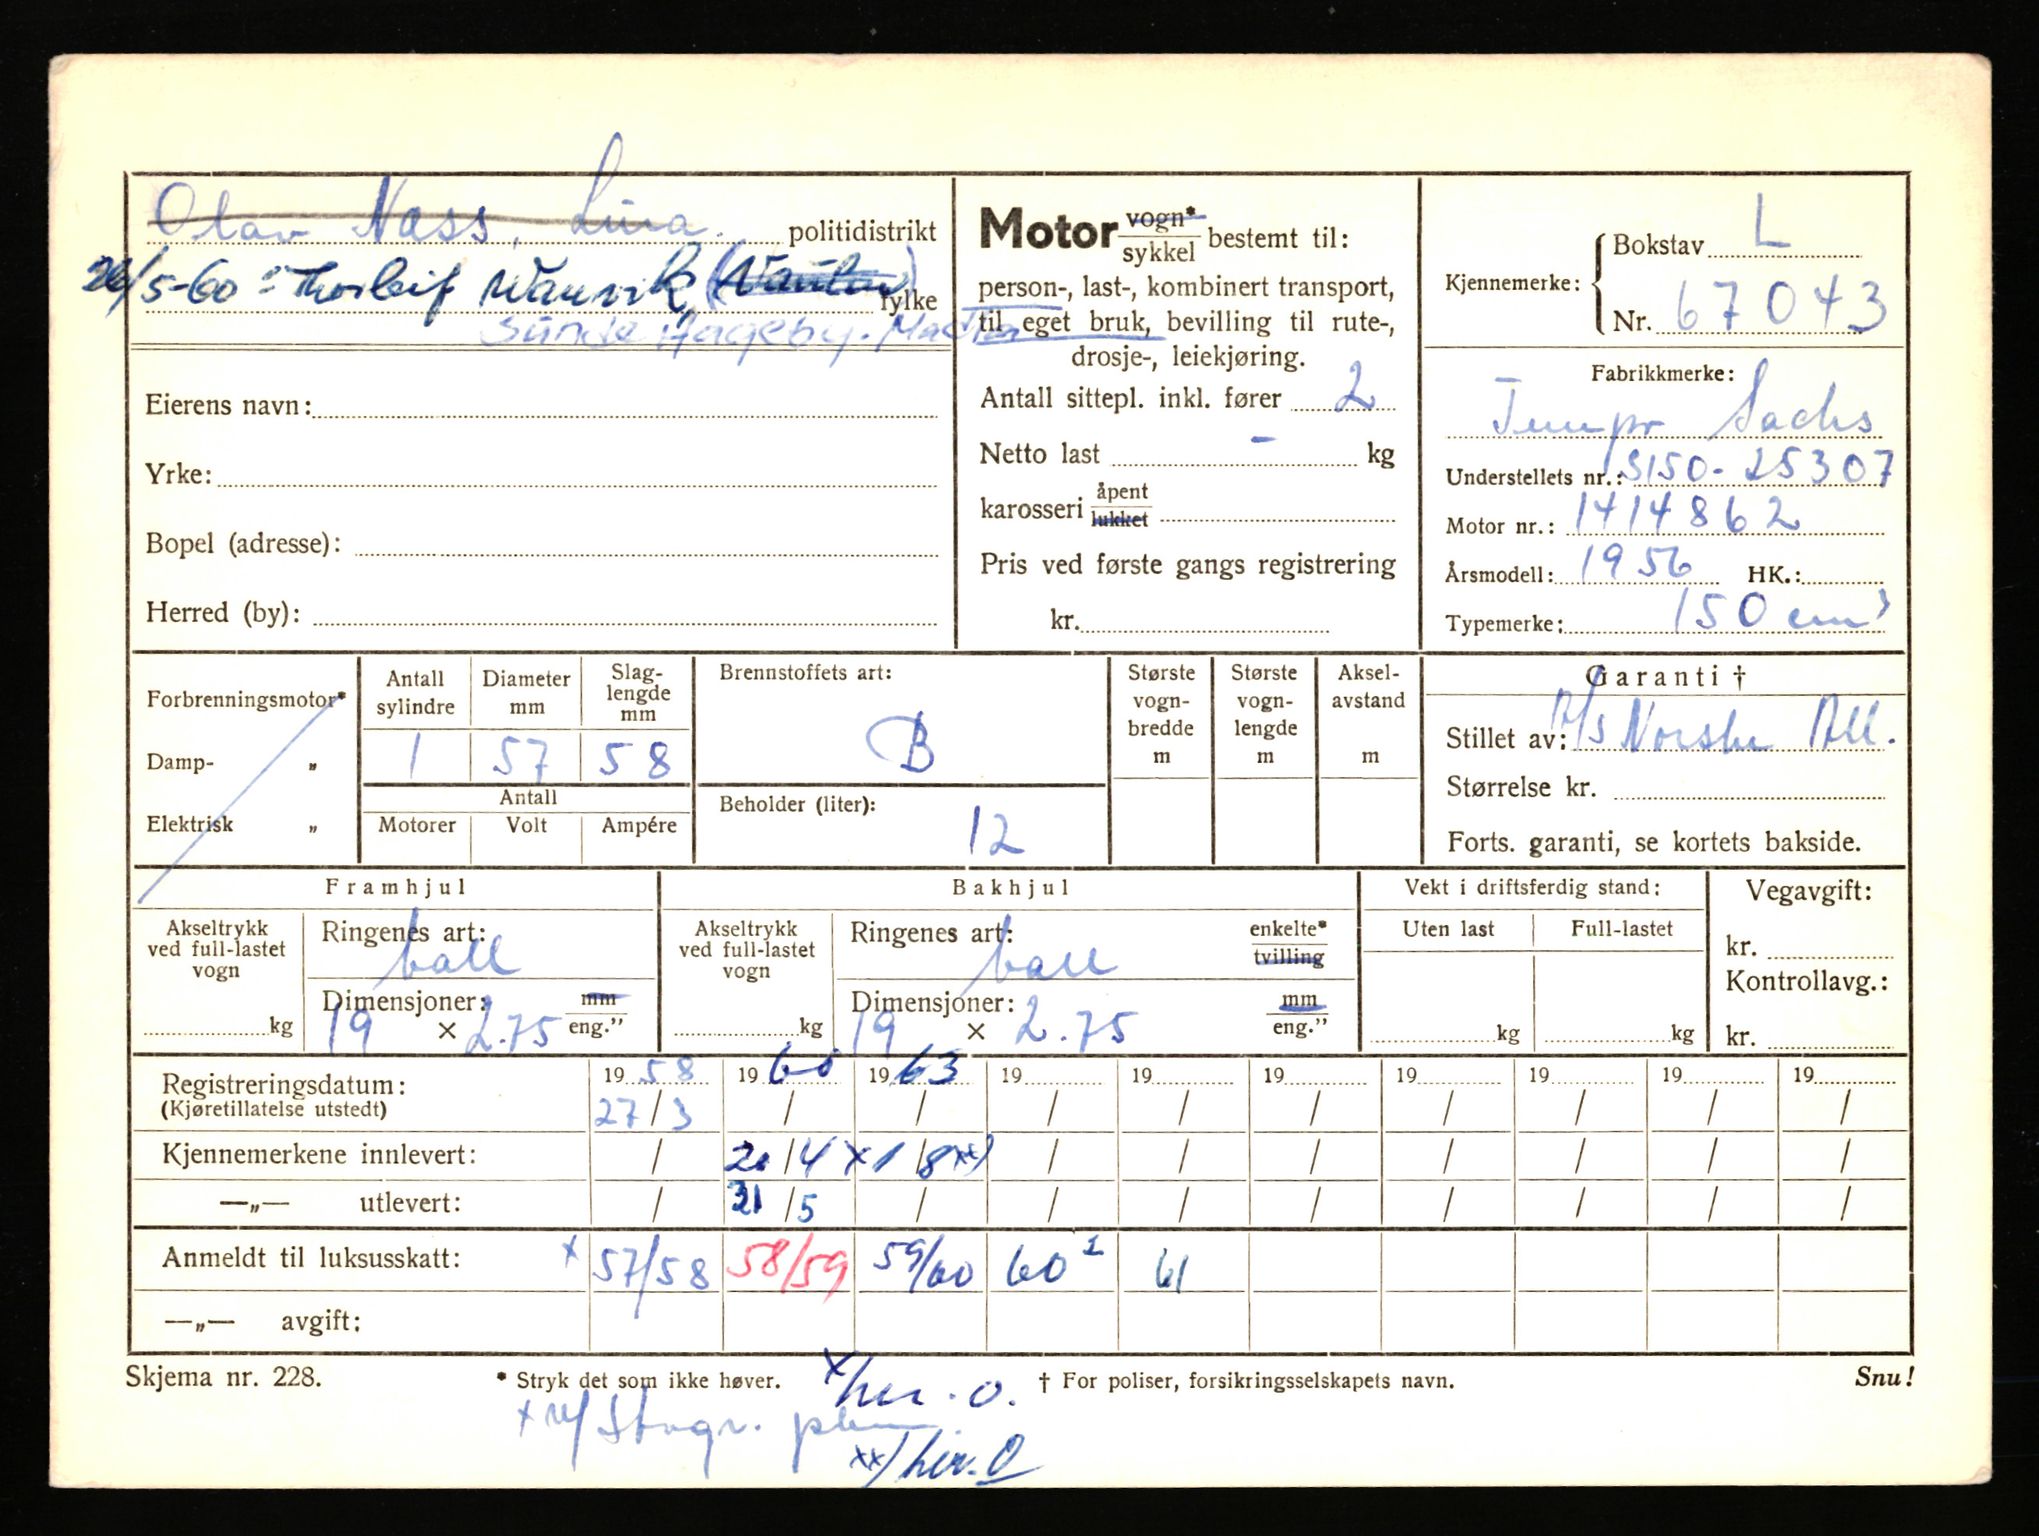 Olav Næss, Lura. politidistrikt
26/5-60 = Thorleif Wanvik fylke
Sunde Hageby. Madla
Eierens navn:
Yrke:
Bopel (adresse):
Herred (by):
Motor vogn*/sykkel bestemt til:
person-, last-, kombinert transport,
til eget bruk, bevilling til rute-,
drosje-, leiekjøring.
Antall sittepl. inkl. fører 2
Netto last - kg
karosseri åpent/lukket
Pris ved første gangs registrering
kr.
Kjennemerke: Bokstav L
Nr. 67043
Fabrikkmerke:
Tempo Sachs
Understellets nr.: S150-25307
Motor nr.: 1414862
Årsmodell: 1956 HK.:
Typemerke: 150 cm³
Forbrenningsmotor*
Damp- „
Elektrisk „
Antall sylindre
Diameter mm
Slag-lengde mm
1 57 58
Antall
Motorer Volt Ampére
Brennstoffets art:
B
Beholder (liter):
12
Største vogn-bredde m
Største vogn-lengde m
Aksel-avstand m
Garanti †
Stillet av: A/S Norske All.
Størrelse kr.
Forts. garanti, se kortets bakside.
Framhjul
Akseltrykk ved full-lastet vogn
kg
Ringenes art:
ball
Dimensjoner: mm/eng.”
19 × 2.75
Bakhjul
Akseltrykk ved full-lastet vogn
kg
Ringenes art: enkelte*/tvilling
ball
Dimensjoner: mm/eng.”
19 × 2.75
Vekt i driftsferdig stand:
Uten last Full-lastet
kg kg
Vegavgift:
kr.
Kontrollavg.:
kr.
Registreringsdatum: 19 58 19 60 19 63 19 19 19 19 19 19 19
(Kjøretillatelse utstedt) 27/3 / / / / / / / / /
Kjennemerkene innlevert: / 2./4 x 1/8 xx) / / / / / / /
—„— utlevert: / 31/5 / / / / / / / /
Anmeldt til luksusskatt: x 57/58 58/59 59/60 60² 61
—„— avgift:
Skjema nr. 228. * Stryk det som ikke høver. † For poliser, forsikringsselskapets navn. Snu!
x/ her. o.
x
xx) her. O